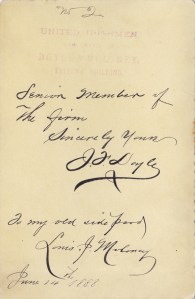 No 2
Senior Member of
The Firm
Sincerely Yours
J. F. Doyle
To my old side pard
Louis J.
June 14th 1888